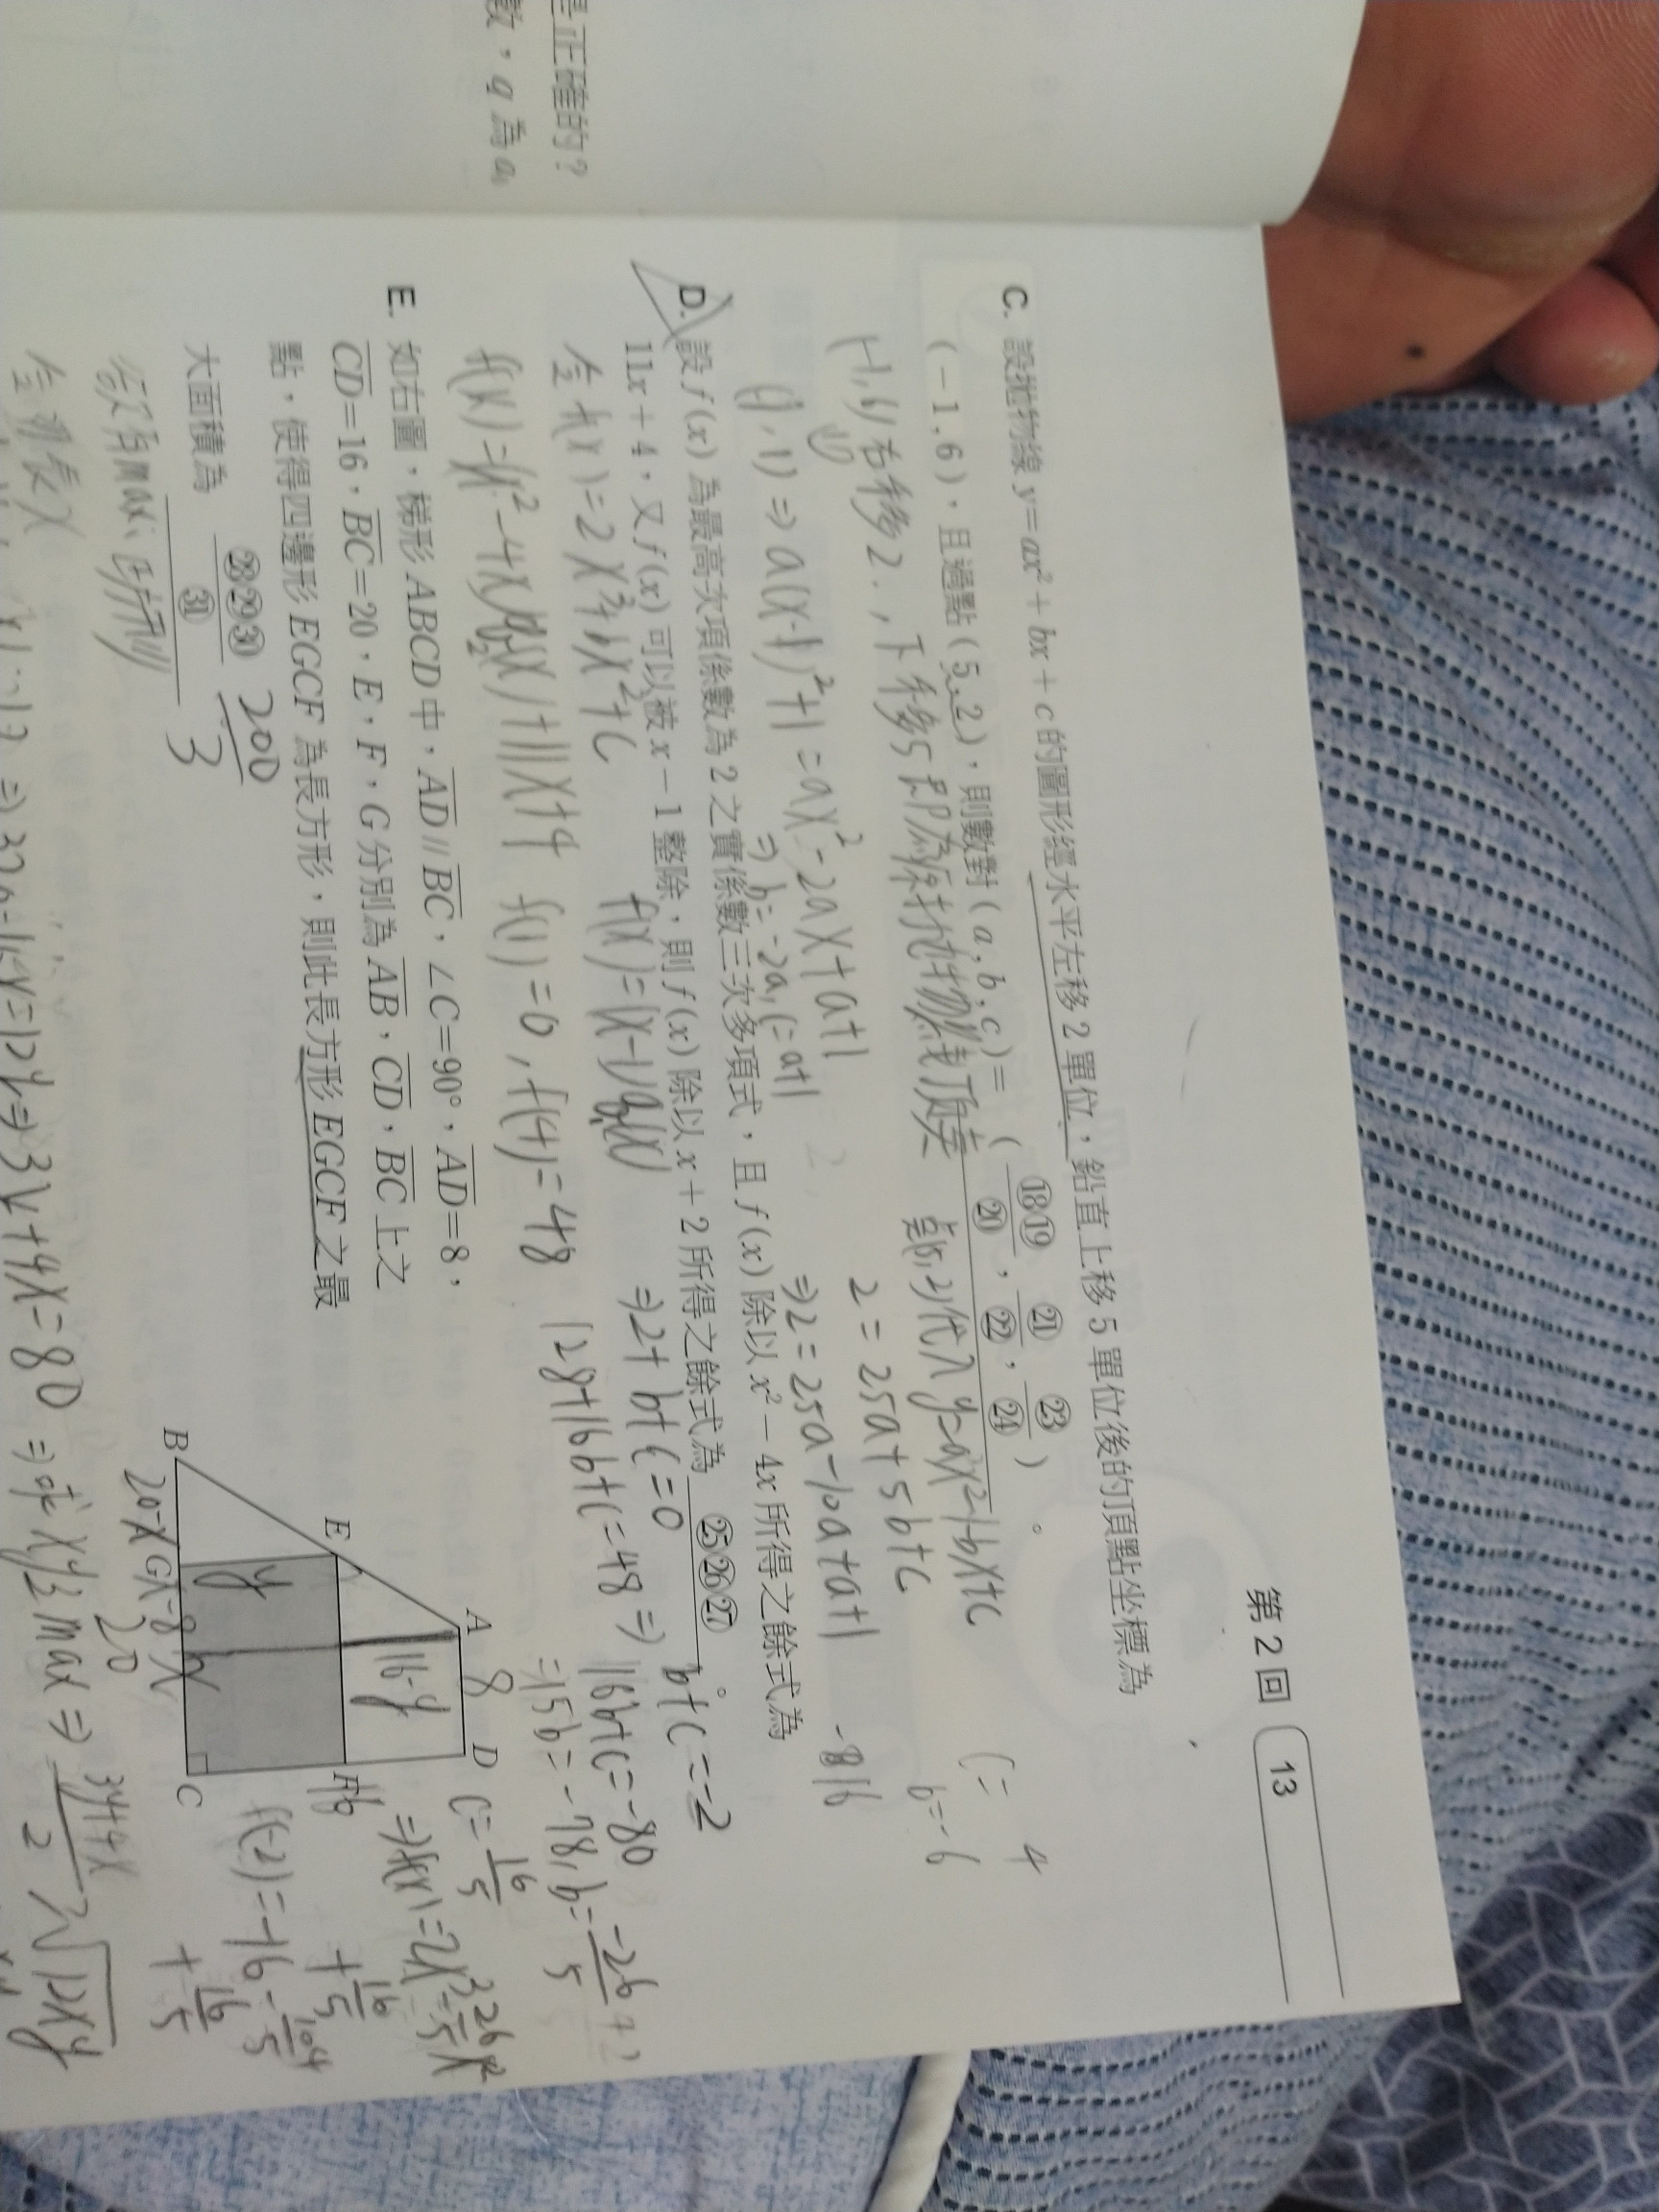 是正確的？
數，q 為 a₁
第 2 回 13
C. 設拋物線 y=ax²+bx+c 的圖形經水平左移 2 單位，鉛直上移 5 單位後的頂點坐標為
(-1,6)，且過點 (5,2)，則數對 (a,b,c)=( ⑱⑲/⑳, ㉑/㉒, ㉓/㉔ )。
(-1,6) 右移2，下移5 即為原拋物線頂點
(1,1) ⇒ a(x-1)²+1 = ax²-2ax+a+1
⇒ b=-2a, c=a+1
代入 y=ax²+bx+c
2=25a+5b+c
⇒2=25a-10a+a+1
c= 4
b=-6
-8/16
D. 設 f(x) 為最高次項係數為 2 之實係數三次多項式，且 f(x) 除以 x²-4x 所得之餘式為
11x+4，又 f(x) 可以被 x-1 整除，則 f(x) 除以 x+2 所得之餘式為 ㉕㉖㉗ 。
令 f(x)=2x³+bx²+c
f(x)=(x-1)q₁(x)
⇒2+b+c=0
b+c=-2
f(x)=(x²-4x)q₂(x)+11x+4
f(1)=0, f(4)=48
128+16b+c=48 ⇒ 16b+c=-80
=15b=-78, b=-26/5
c=16/5
⇒f(x)=2x³-26/5x²
+16/5
f(-2)=-16-104/5
+16/5
E. 如右圖，梯形 ABCD 中，AD // BC，∠C=90°，AD=8，
CD=16，BC=20，E，F，G 分別為 AB，CD，BC 上之
點，使得四邊形 EGCF 為長方形，則此長方形 EGCF 之最
大面積為 ㉘㉙㉚/㉛
200/3
A 8 D
16-y
E F 16
y
B 20-x G x-8 8 C
x
20
令 x
⇒ 3y+4x=80 ⇒ 求 xy 之 max ⇒ 3y+4x/2 ≥ √12xy